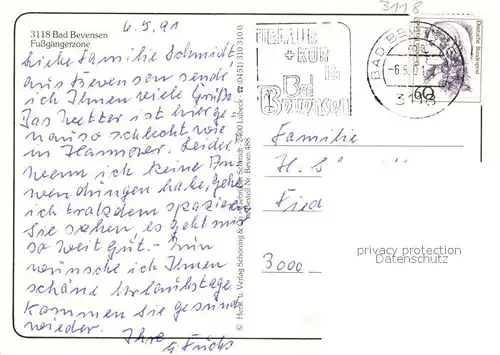 3118 Bad Bevensen
Fußgängerzone
6.5.91
Liebe Familie Schmidt,
aus Bevensen sende
ich Ihnen viele Grüße.
Das Wetter ist hier ge-
nauso schlecht wie
in Hannover. Leider
Wenn ich keine An-
wendungen habe, gehe
ich trotzdem spazieren
Sie sehen, es geht mir
so weit gut. - Nun
wünsche ich Ihnen
schöne Urlaubstage.
Kommen Sie gesund
wieder.
Ihre
Fuchs
© Herst. u. Verlag Schöning & Co + Gebrüder Schmidt · 2400 Lübeck ☎ (0451) 310 310 0
Bestell-Nr. Beven 488
URLAUB
+ KUR
IN
Bad
Bevensen
BAD BEVENSEN
-6.5.91
3118
3118
60
Deutsche Bundespost
Familie
H. S
Fried
3000
privacy protection
Datenschutz